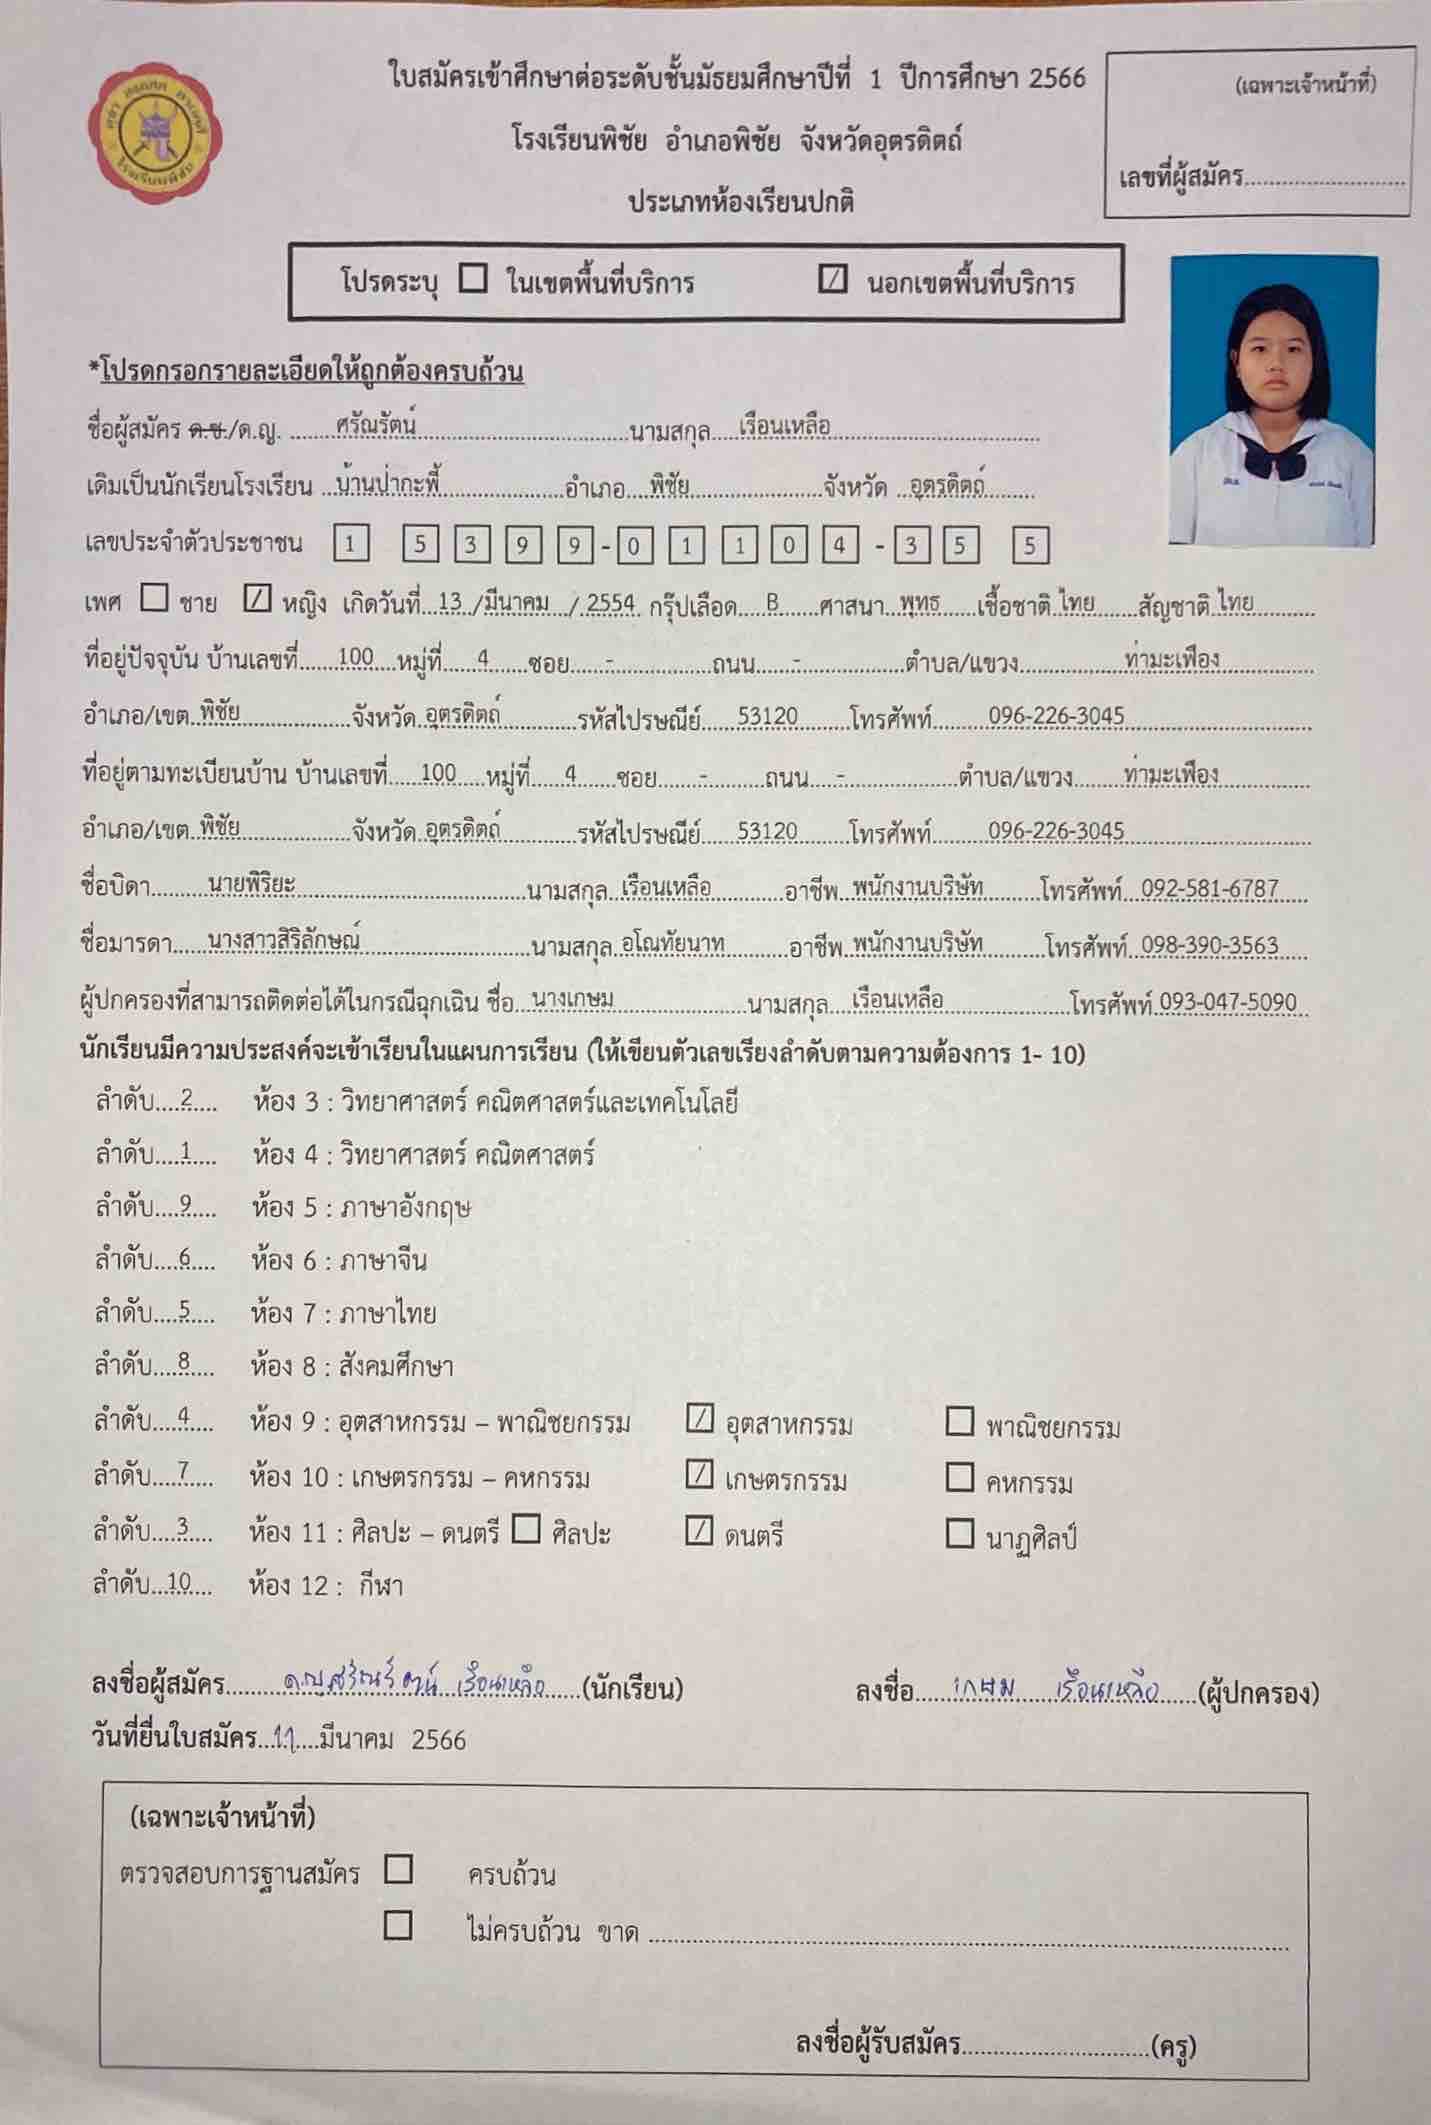 ใบสมัครเข้าศึกษาต่อระดับชั้นมัธยมศึกษาปีที่ 1 ปีการศึกษา 2566
(เฉพาะเจ้าหน้าที่)
โรงเรียนพิชัย อำเภอพิชัย จังหวัดอุตรดิตถ์
เลขที่ผู้สมัคร..............................
ประเภทห้องเรียนปกติ
โปรดระบุ ☐ ในเขตพื้นที่บริการ ☑ นอกเขตพื้นที่บริการ
โรงเรียนพิชัย
*โปรดกรอกรายละเอียดให้ถูกต้องครบถ้วน
ชื่อผู้สมัคร ด.ช./ด.ญ. ศรัณรัตน์ นามสกุล เรือนเหลือ
เดิมเป็นนักเรียนโรงเรียน บ้านป่ากะพี้ อำเภอ พิชัย จังหวัด อุตรดิตถ์
เลขประจำตัวประชาชน 1 5 3 9 9 - 0 1 1 0 4 - 3 5 5
เพศ ☐ ชาย ☑ หญิง เกิดวันที่ 13 / มีนาคม / 2554 กรุ๊ปเลือด B ศาสนา พุทธ เชื้อชาติ ไทย สัญชาติ ไทย
ที่อยู่ปัจจุบัน บ้านเลขที่ 100 หมู่ที่ 4 ซอย - ถนน - ตำบล/แขวง ท่ามะเฟือง
อำเภอ/เขต พิชัย จังหวัด อุตรดิตถ์ รหัสไปรษณีย์ 53120 โทรศัพท์ 096-226-3045
ที่อยู่ตามทะเบียนบ้าน บ้านเลขที่ 100 หมู่ที่ 4 ซอย - ถนน - ตำบล/แขวง ท่ามะเฟือง
อำเภอ/เขต พิชัย จังหวัด อุตรดิตถ์ รหัสไปรษณีย์ 53120 โทรศัพท์ 096-226-3045
ชื่อบิดา นายพิริยะ นามสกุล เรือนเหลือ อาชีพ พนักงานบริษัท โทรศัพท์ 092-581-6787
ชื่อมารดา นางสาวสิริลักษณ์ นามสกุล อโณทัยนาท อาชีพ พนักงานบริษัท โทรศัพท์ 098-390-3563
ผู้ปกครองที่สามารถติดต่อได้ในกรณีฉุกเฉิน ชื่อ นางเกษม นามสกุล เรือนเหลือ โทรศัพท์ 093-047-5090
นักเรียนมีความประสงค์จะเข้าเรียนในแผนการเรียน (ให้เขียนตัวเลขเรียงลำดับตามความต้องการ 1- 10)
ลำดับ 2 ห้อง 3 : วิทยาศาสตร์ คณิตศาสตร์และเทคโนโลยี
ลำดับ 1 ห้อง 4 : วิทยาศาสตร์ คณิตศาสตร์
ลำดับ 9 ห้อง 5 : ภาษาอังกฤษ
ลำดับ 6 ห้อง 6 : ภาษาจีน
ลำดับ 5 ห้อง 7 : ภาษาไทย
ลำดับ 8 ห้อง 8 : สังคมศึกษา
ลำดับ 4 ห้อง 9 : อุตสาหกรรม – พาณิชยกรรม ☑ อุตสาหกรรม ☐ พาณิชยกรรม
ลำดับ 7 ห้อง 10 : เกษตรกรรม – คหกรรม ☑ เกษตรกรรม ☐ คหกรรม
ลำดับ 3 ห้อง 11 : ศิลปะ – ดนตรี ☐ ศิลปะ ☑ ดนตรี ☐ นาฏศิลป์
ลำดับ 10 ห้อง 12 : กีฬา
ลงชื่อผู้สมัคร ด.ญ.ศรัณรัตน์ เรือนเหลือ (นักเรียน) ลงชื่อ เกษม เรือนเหลือ (ผู้ปกครอง)
วันที่ยื่นใบสมัคร มีนาคม 2566
(เฉพาะเจ้าหน้าที่)
ตรวจสอบการฐานสมัคร ☐ ครบถ้วน
☐ ไม่ครบถ้วน ขาด ..............................
ลงชื่อผู้รับสมัคร..............................(ครู)